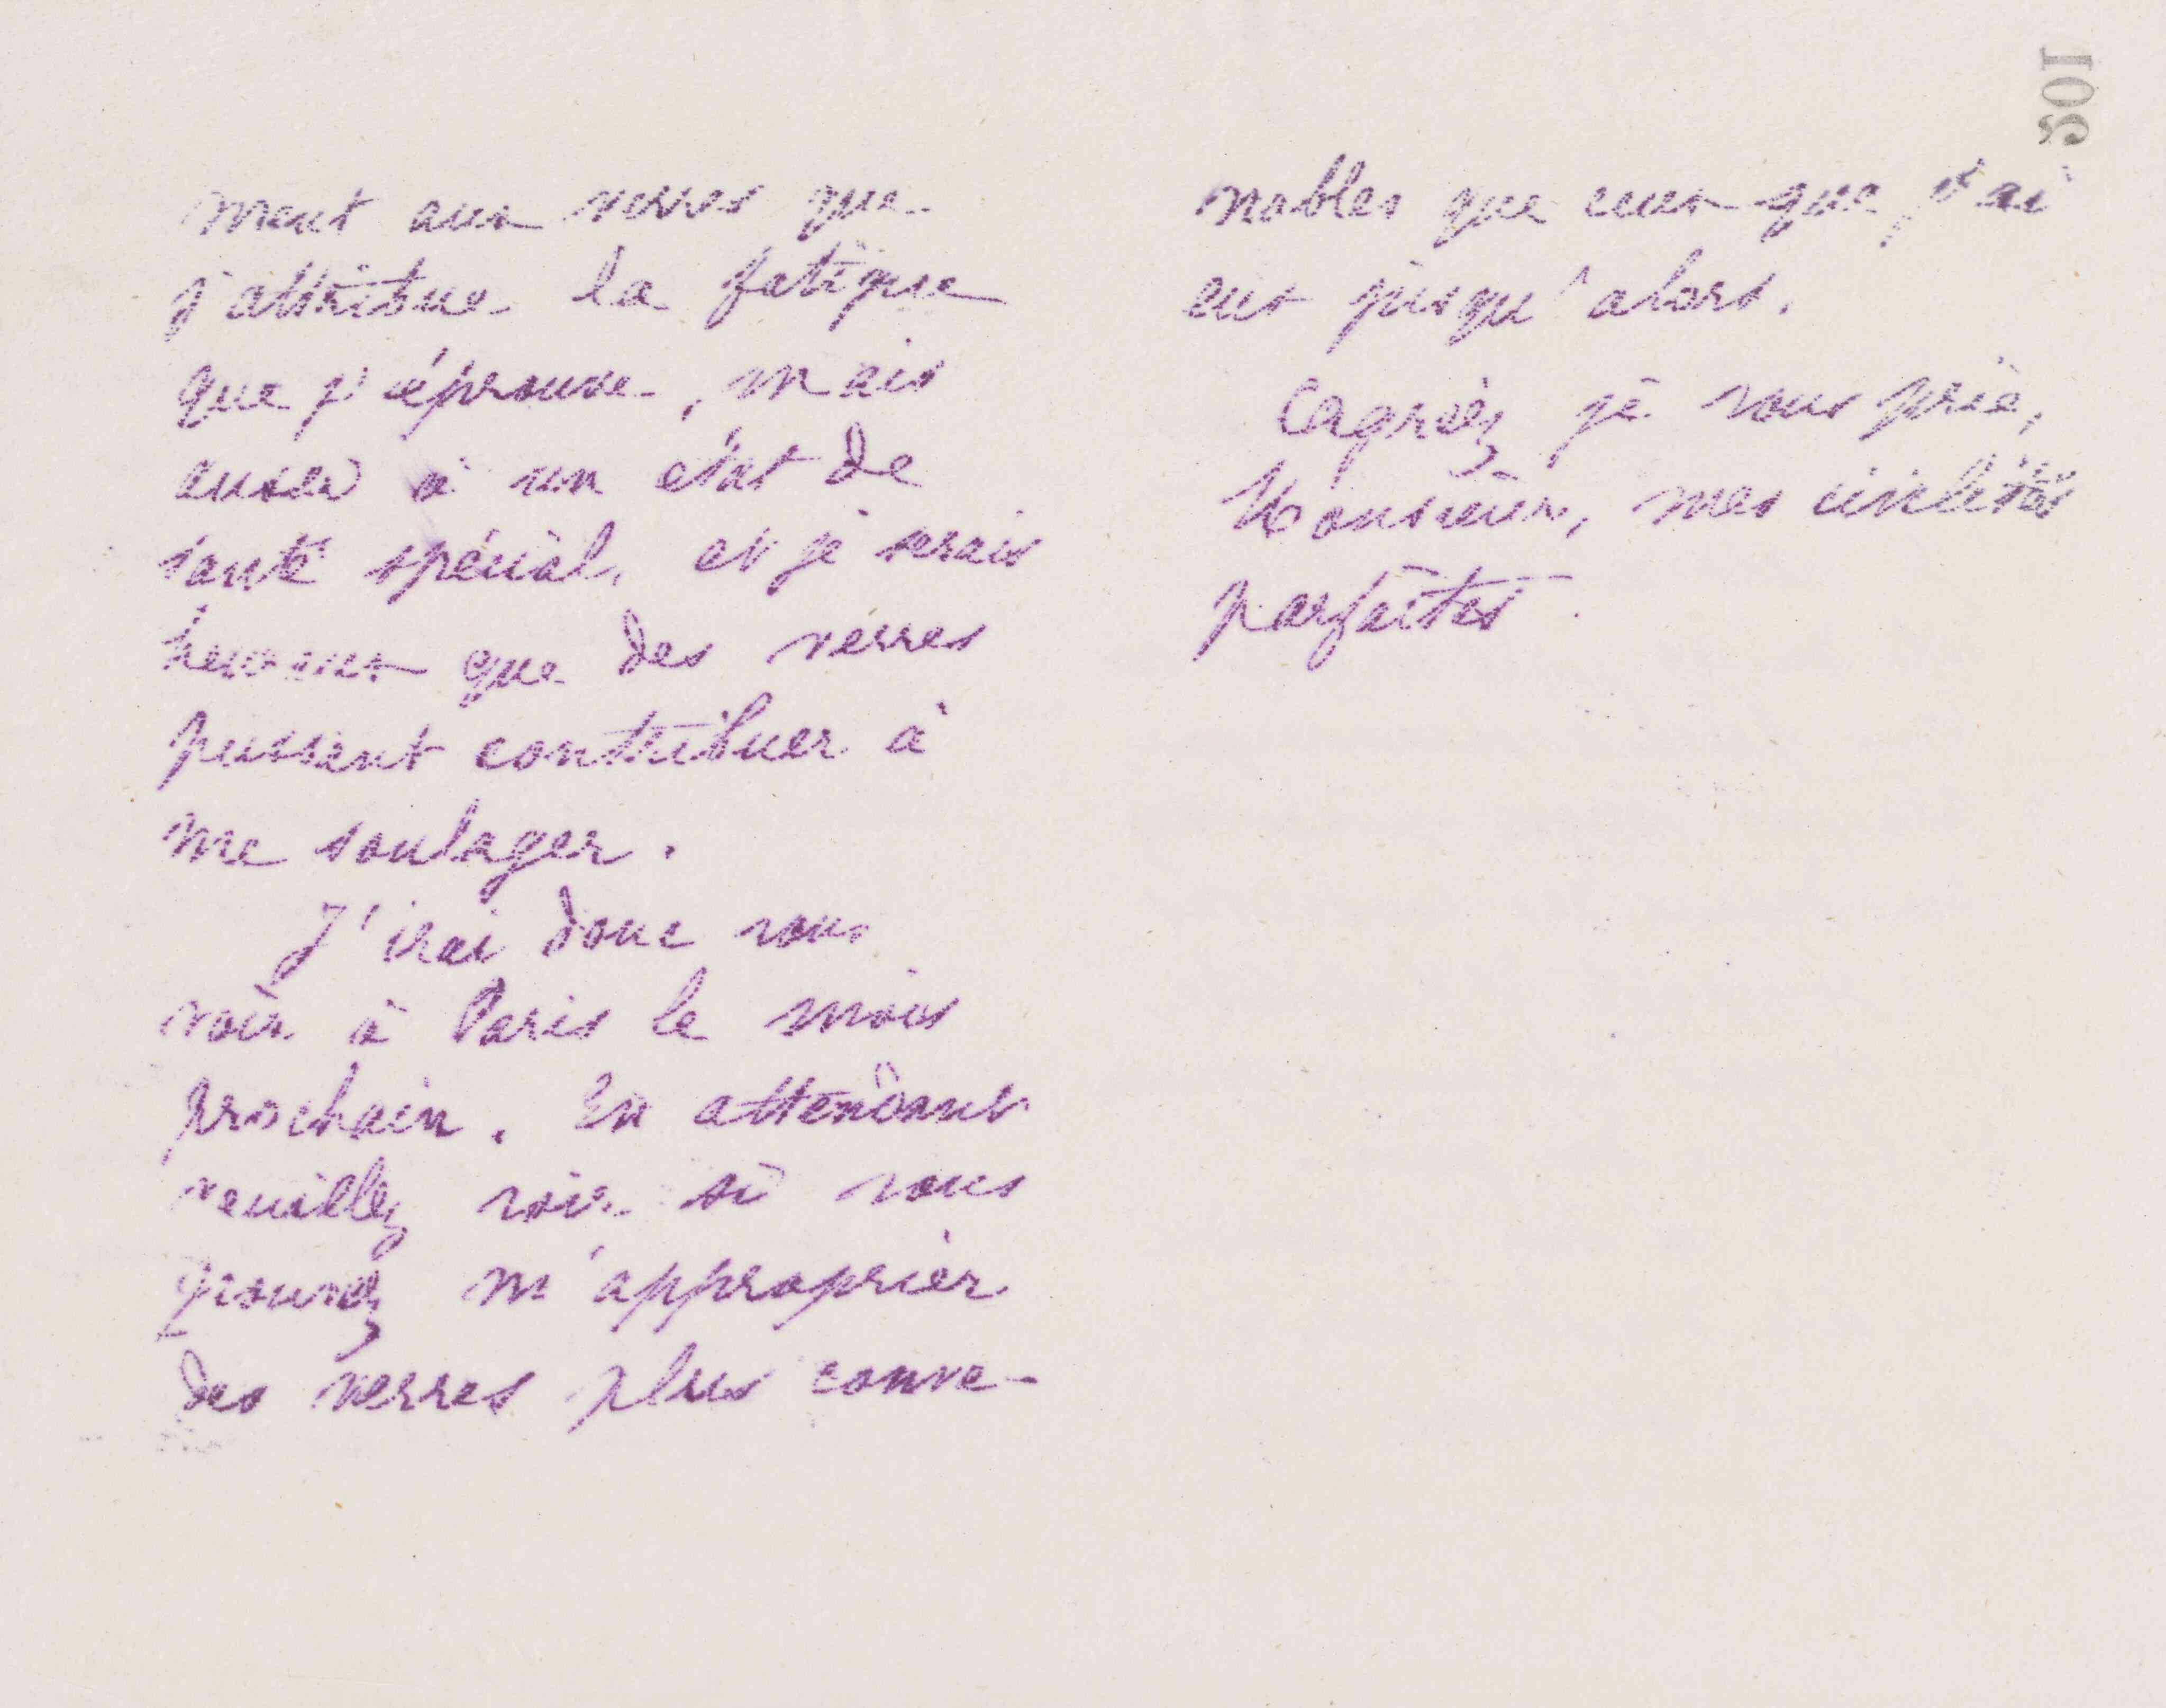 ment aux verres que
j'attribue la fatigue
que j'éprouve, mais
aussi à un état de
santé spécial, et je serais
heureux que des verres
pussent contribuer à
me soulager.
J'irai donc vous
voir à Paris le mois
prochain. En attendant
veuillez voir si vous
pouvez m'approprier
des verres plus conve-
nables que ceux que j'ai
eus jusqu'alors.
Agréez je vous prie,
Monsieur, mes civilités
parfaites.
501